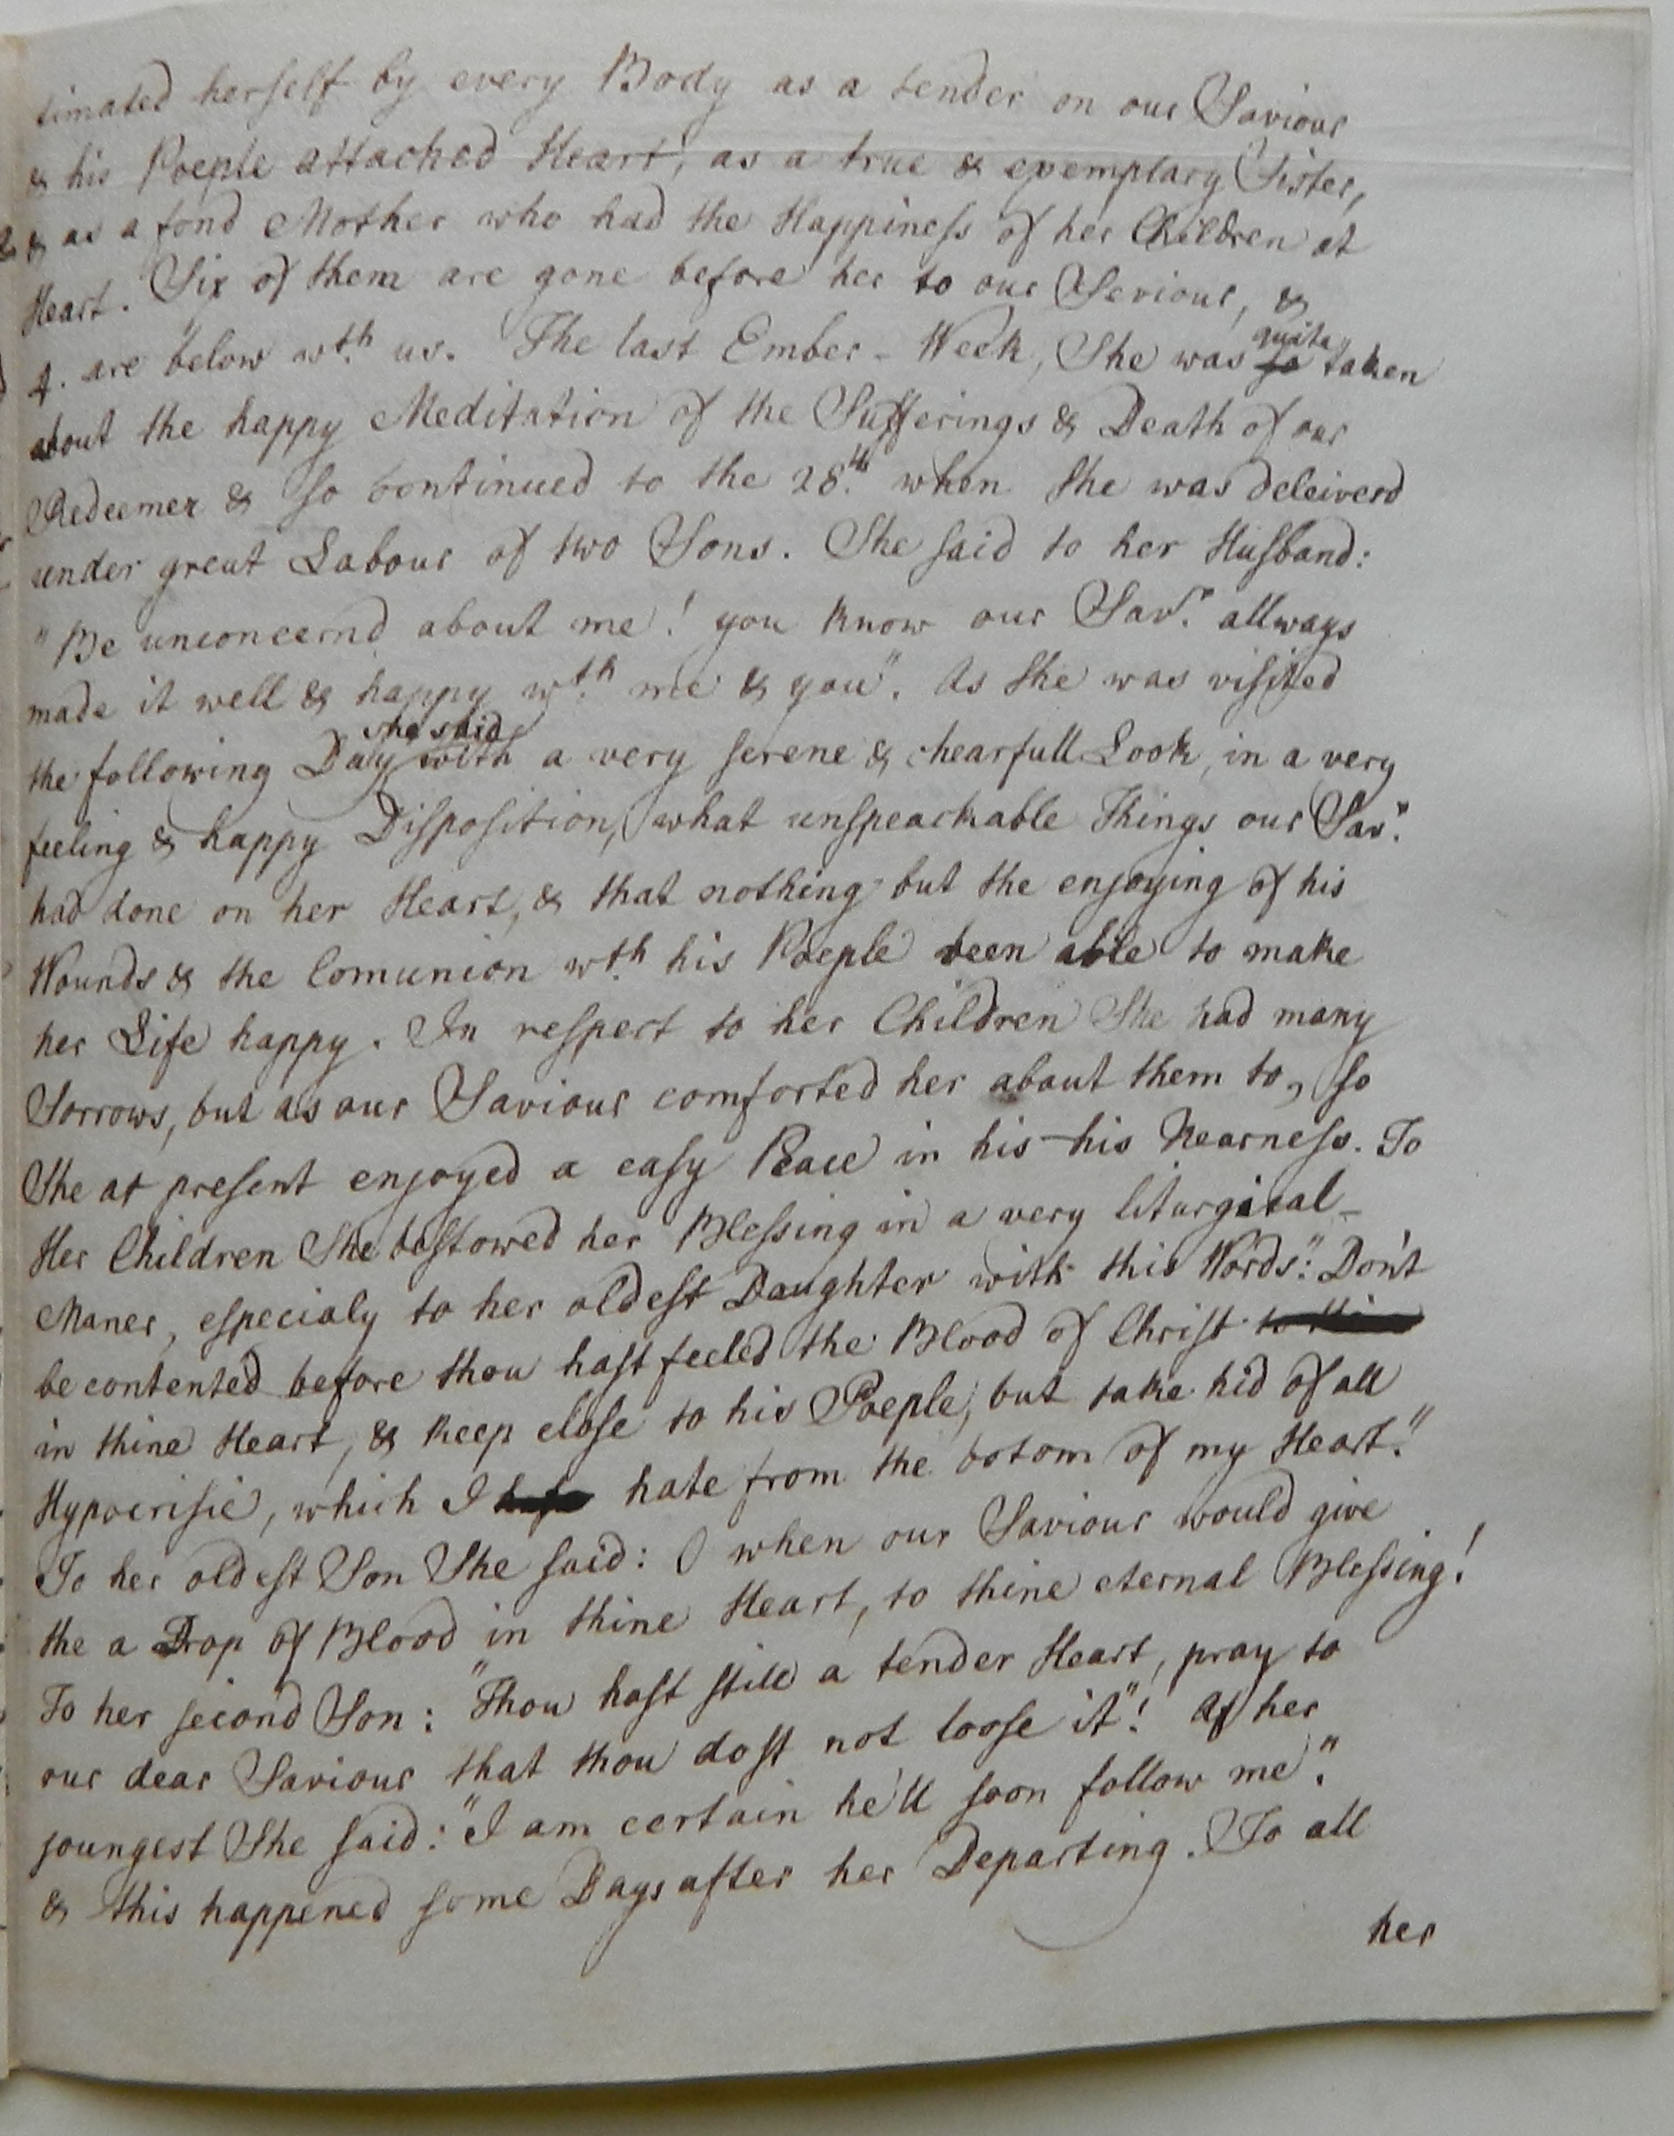 timated herself by every Body as a tender on our Saviour
& his Poeple attached Heart, as a true & exemplary Sister,
& as a fond Mother who had the Happiness of her Children at
Heart. Six of them are gone before her to our Saviour, &
4. are below wth. us. The last Ember-Week, She was quite taken
about the happy Meditation of the Sufferings & Death of our
Redeemer & so continued to the 28th. when She was deleiverd
under great Labour of two Sons. She said to her Husband:
"Be unconcernd about me! you know our Savr. allways
made it well & happy wth. me & you". As She was visited
the following Day she said with a very serene & chearfull Look, in a very
feeling & happy Disposition, what unspeackable Things our Savr.
had done on her Heart, & that nothing but the enjoying of his
Wounds & the Comunion wth. his Poeple been able to make
her Life happy. In respect to her Children She had many
Sorrows, but as our Saviour comforted her about them to, so
She at present enjoyed a easy Peace in his his Nearness. To
Her Children She bestowed her Blessing in a very liturgical
Maner, especialy to her oldest Daughter with this Words: "Don't
be contented before thou hast feeled the Blood of Christ
in thine Heart, & keep close to his Poeple, but take hid of all
Hypocrisie, which I hate from the botom of my Heart."
To her oldest Son She said: O when our Saviour would give
the a Drop of Blood in thine Heart, to thine eternal Blessing!
To her second Son: "Thou hast still a tender Heart, pray to
our dear Saviour that thou dost not loose it"! Of her
youngest She said: "I am certain he'll soon follow me".
& this happened some Days after her Departing. To all
her